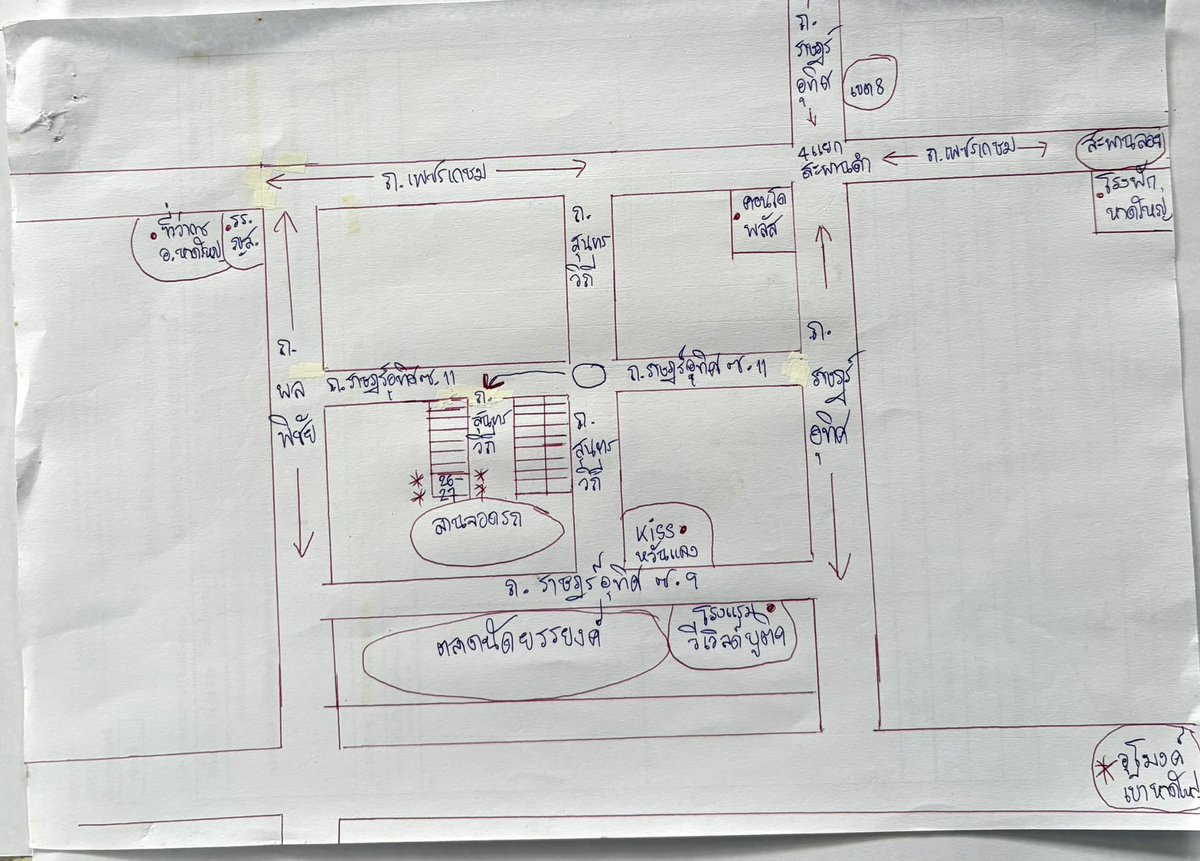 ถ.
ราษฎร์
อุทิศ
เขต 8
4 แยก
สะพานดำ
ถ.เพชรเกษม
สะพานลอย
โรงพัก
หาดใหญ่
ถ.เพชรเกษม
คอนโด
พลัส
ที่ว่าการ
อ.หาดใหญ่
รร.
ถ.
สุนทร
วิถี
ถ.
พล
พิชัย
ถ.ราษฎร์อุทิศ ซ.11
ถ.ราษฎร์อุทิศ ซ.11
ถ.
ราษฎร์
อุทิศ
ถ.
สุนทร
วิถี
ถ.
สุนทร
วิถี
26
27
ลานจอดรถ
Kiss
หวันแดง
ถ. ราษฎร์อุทิศ ซ.9
ตลาดนัดบรรยงค์
โรงแรม
อุโมงค์
เขาหาดใหญ่